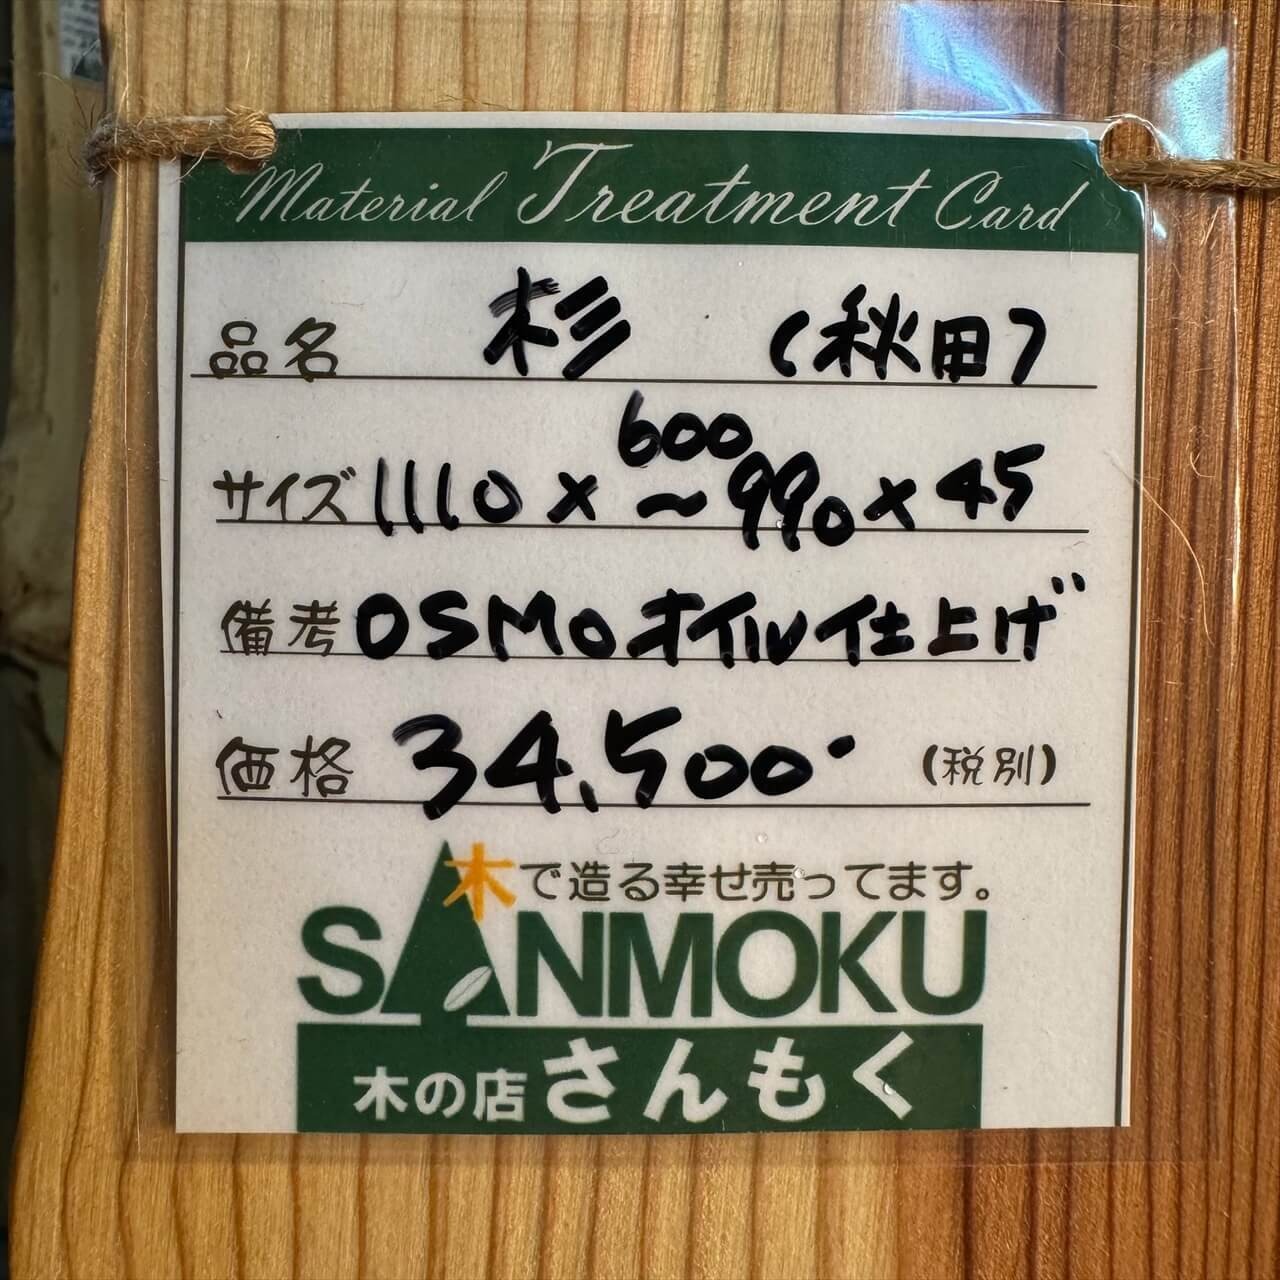 Material Treatment Card
品名 杉 (秋田)
サイズ 1110 × 600～990 × 45
備考 OSMOオイル仕上げ
価格 34,500・ (税別)
木で造る幸せ売ってます。
SANMOKU
木の店さんもく